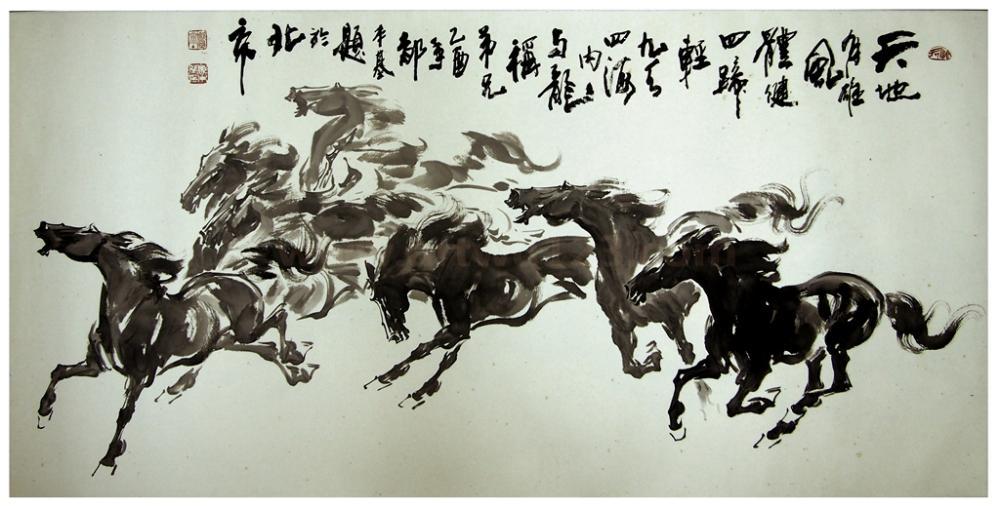 天地
雄
風
體健
四蹄
輕
九
四海
内
与龍
稱
弟兄
乙酉
年
本基
題
於
北
京